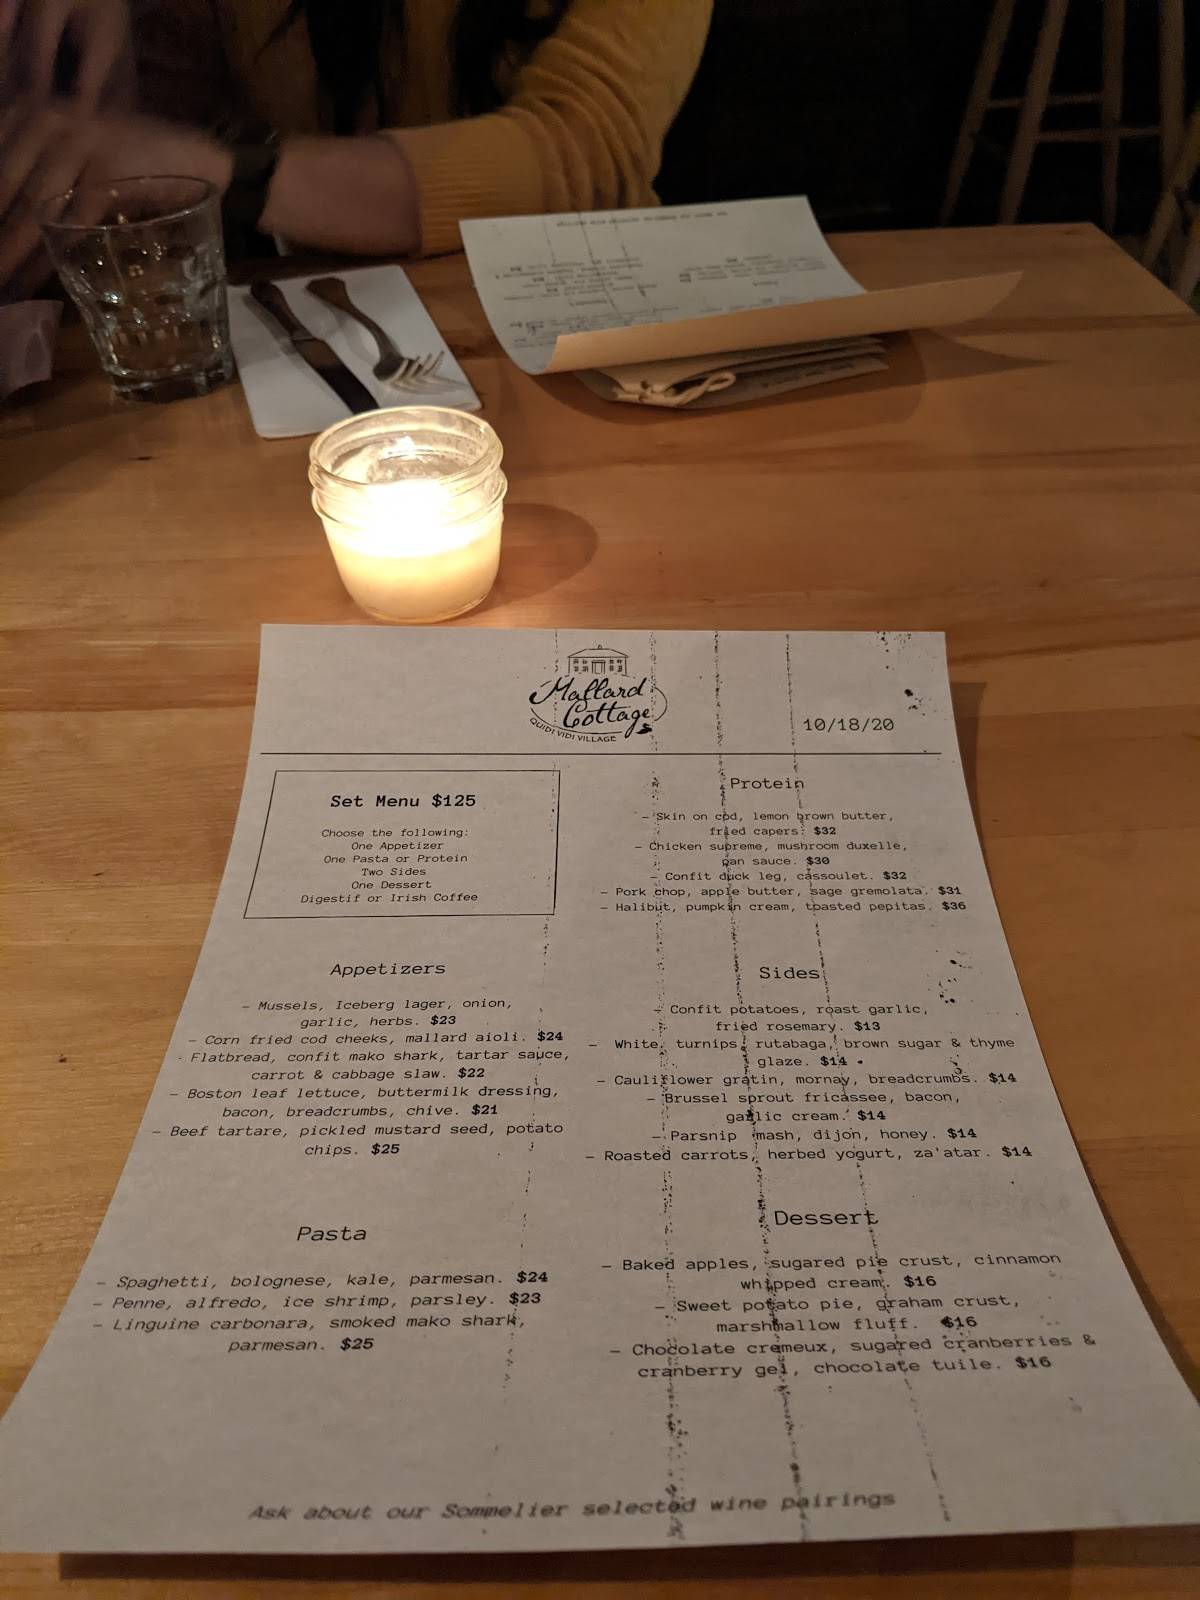 Mallard
Cottage
QUIDI VIDI VILLAGE
10/18/20
Set Menu $125
Choose the following:
One Appetizer
One Pasta or Protein
Two Sides
One Dessert
Digestif or Irish Coffee
Appetizers
- Mussels, Iceberg lager, onion,
garlic, herbs. $23
- Corn fried cod cheeks, mallard aioli. $24
- Flatbread, confit mako shark, tartar sauce,
carrot & cabbage slaw. $22
- Boston leaf lettuce, buttermilk dressing,
bacon, breadcrumbs, chive. $21
- Beef tartare, pickled mustard seed, potato
chips. $25
Pasta
- Spaghetti, bolognese, kale, parmesan. $24
- Penne, alfredo, ice shrimp, parsley. $23
- Linguine carbonara, smoked mako shark,
parmesan. $25
Protein
- Skin on cod, lemon brown butter,
fried capers. $32
- Chicken supreme, mushroom duxelle,
pan sauce. $30
- Confit duck leg, cassoulet. $32
- Pork chop, apple butter, sage gremolata. $31
- Halibut, pumpkin cream, toasted pepitas. $36
Sides
- Confit potatoes, roast garlic,
fried rosemary. $13
- White, turnips, rutabaga, brown sugar & thyme
glaze. $14
- Cauliflower gratin, mornay, breadcrumbs. $14
- Brussel sprout fricassee, bacon,
garlic cream. $14
- Parsnip mash, dijon, honey. $14
- Roasted carrots, herbed yogurt, za'atar. $14
Dessert
- Baked apples, sugared pie crust, cinnamon
whipped cream. $16
- Sweet potato pie, graham crust,
marshmallow fluff. $16
- Chocolate cremeux, sugared cranberries &
cranberry gel, chocolate tuile. $16
Ask about our Sommelier selected wine pairings